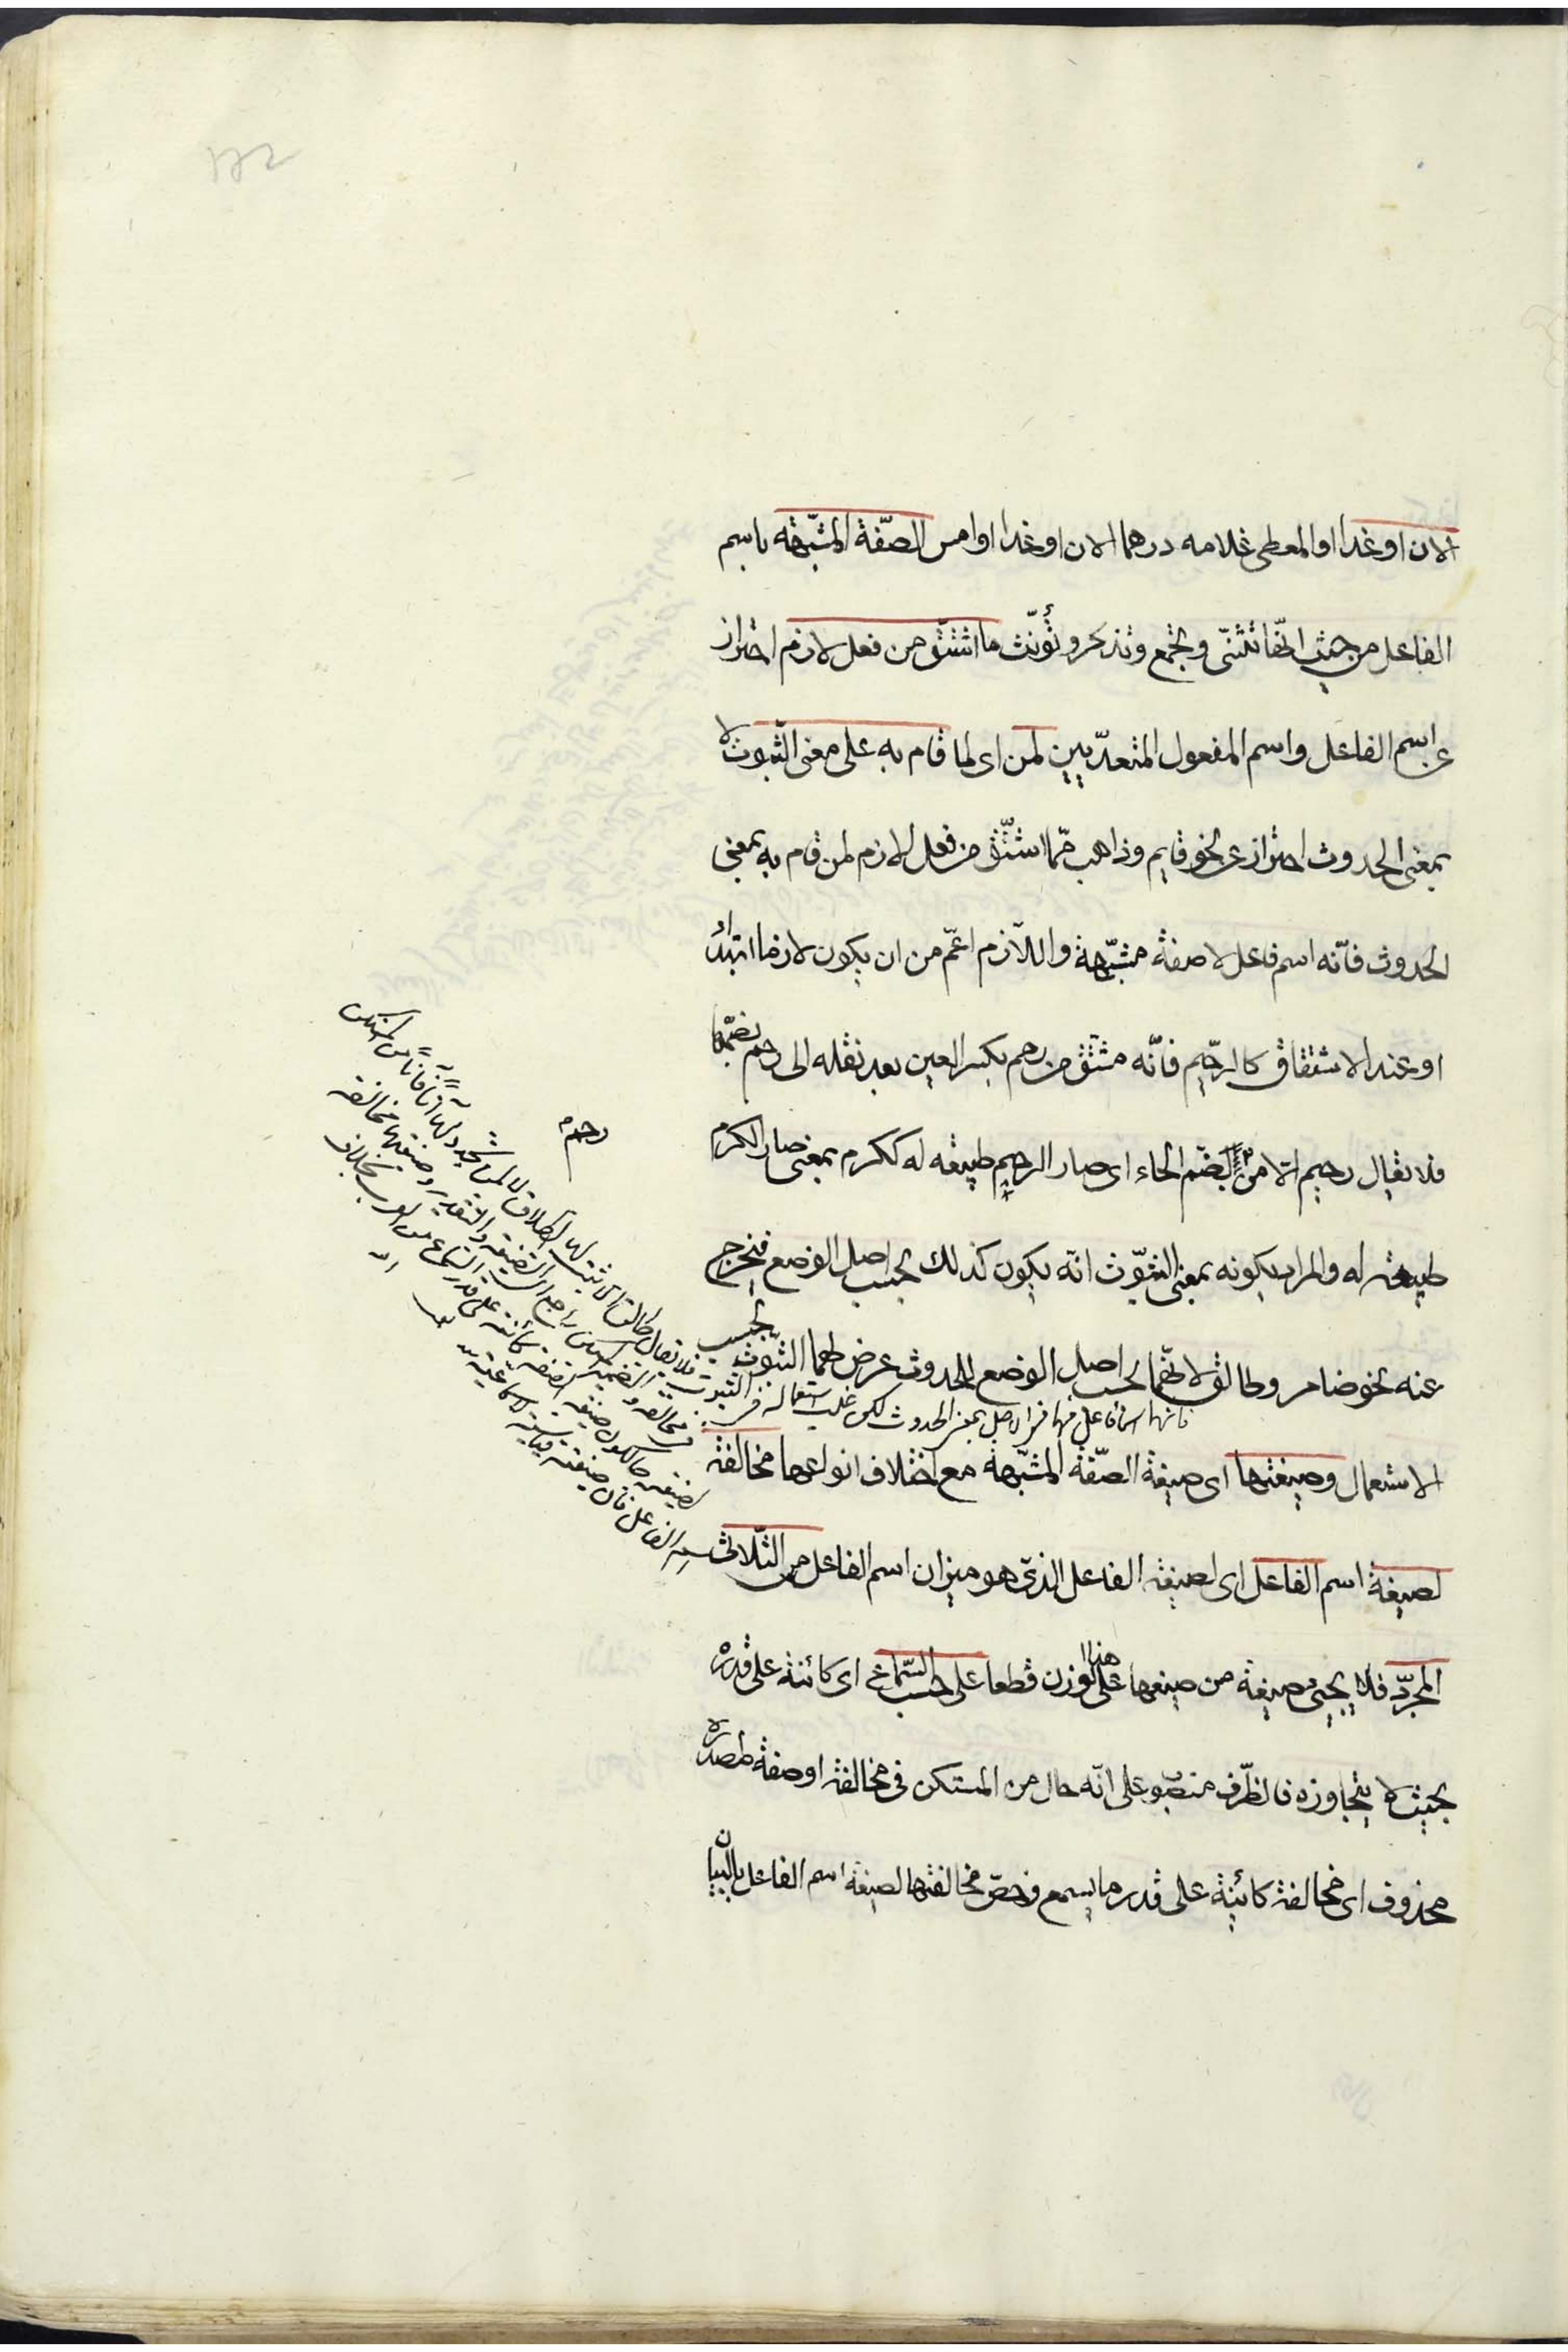 الان او غدا او المعطى غلامه درهما الان او غدا او امس الصّفة المشبّهه باسم
الفاعل من حيث انّها تثنّى وتجمع وتذكر وتؤنّث ما اشتقّ من فعل لازم احتراز
عن اسم الفاعل واسم المفعول المتعدّيين لمن اى لما قام به على معنى الثّبوت لا
بمعنى الحدوث احتراز عن نحو قايم وذاهب ممّا اشتقّ من فعل لازم لمن قام به بمعنى
الحدوث فانّه اسم فاعل لا صفة مشبّهة واللاّزم اعمّ من ان يكون لازما ابتداء
او عند الاشتقاق كالرحيم فانّه مشتق من رحم بكسر العين بعد نقله الى رحم بضمّها
رحم
فلا يقال رحيم الاّ من رحم بضم الحاء اى صار الرحيم طبيعه له ككرم بمعنى صار الكرم
طبيعة له والمراد بكونه بمعنى الثّبوت انّه يكون كذلك بحسب اصل الوضع فيخرج
عنه نحو ضامر وطالق لانّهما بحسب اصل الوضع للحدوث عرض لهما الثبوت بحسب
فانهما اسما فاعل فهما فى الاصل بمعنى الحدوث لكن غلب استعماله فى الثبوت
الاستعمال وصيغتها اى صيغة الصّفة المشبّهة مع اختلاف انواعها مخالفة
لصيغة اسم الفاعل اى لصيغة الفاعل الذى هو ميزان اسم الفاعل من الثّلاثى
المجرّد فلا يجيئ صيغة من صيغها على هذا الوزن قطعا على حسب السّماع اى كائنة على قدره
بحيث لا يتجاوزه فالظّرف منصوب على انّه حال من المستكن فى مخالفة او صفة لمصدر
محذوف اى مخالفة كائنة على قدر ما يسمع وخصّ مخالفتها لصيغة اسم الفاعل بالبيان